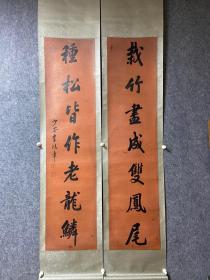 栽竹盡成雙鳳尾
種松皆作老龍鱗